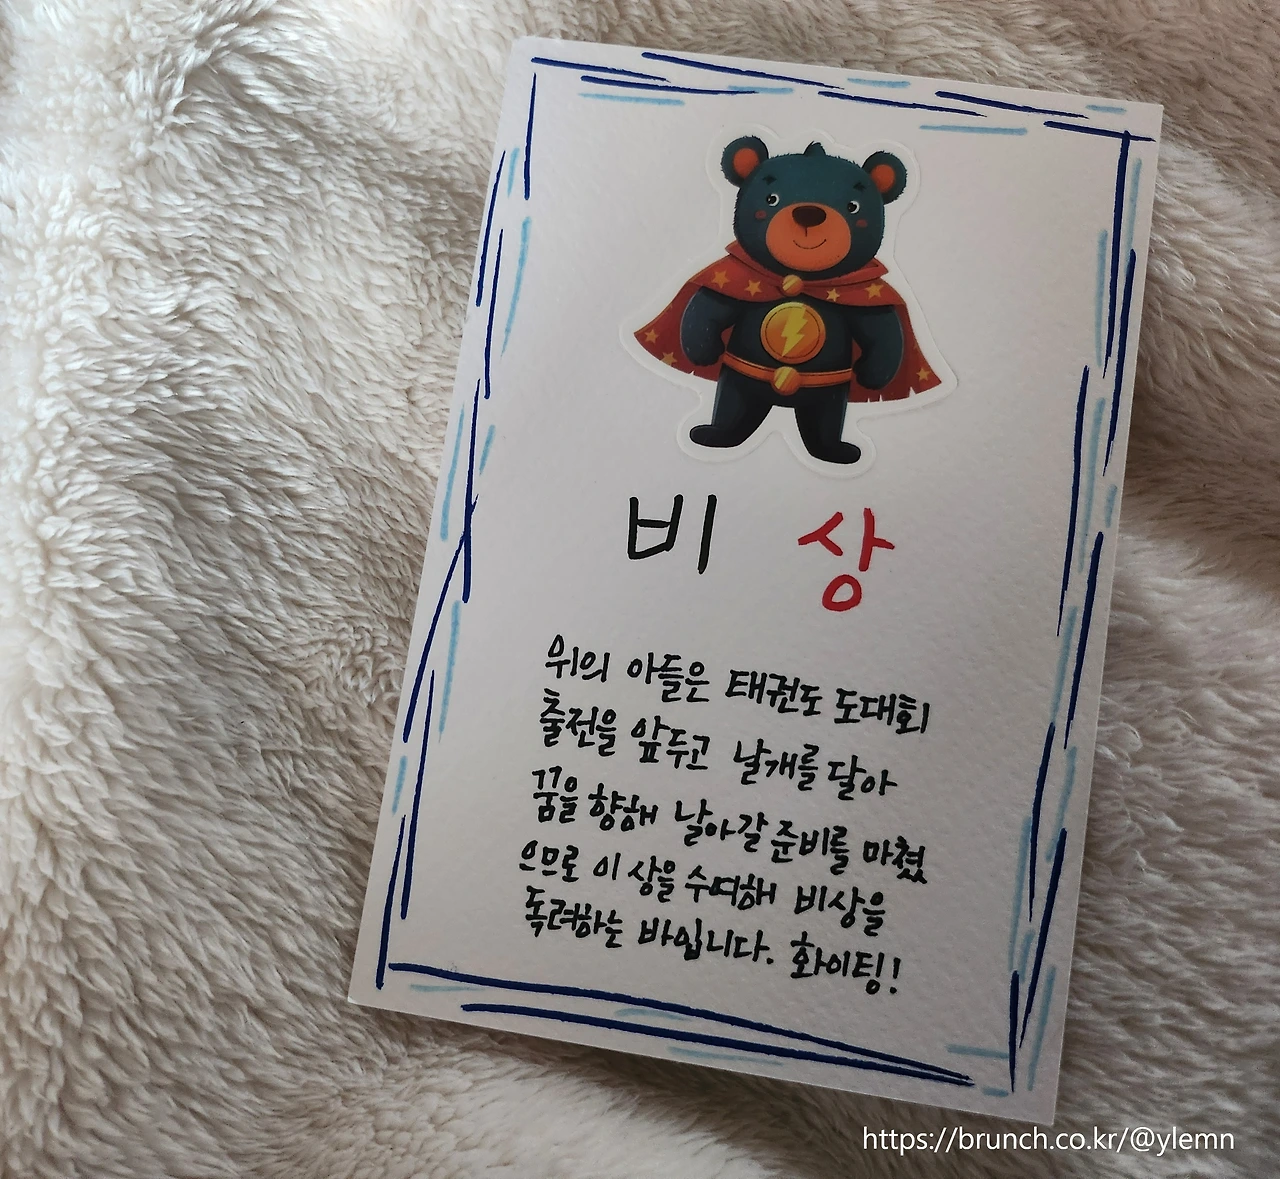 비 상
위의 아들은 태권도 도대회
출전을 앞두고 날개를 달아
꿈을 향해 날아갈 준비를 마쳤
으므로 이 상을 수여해 비상을
독려하는 바입니다. 화이팅!
https://brunch.co.kr/@ylemn